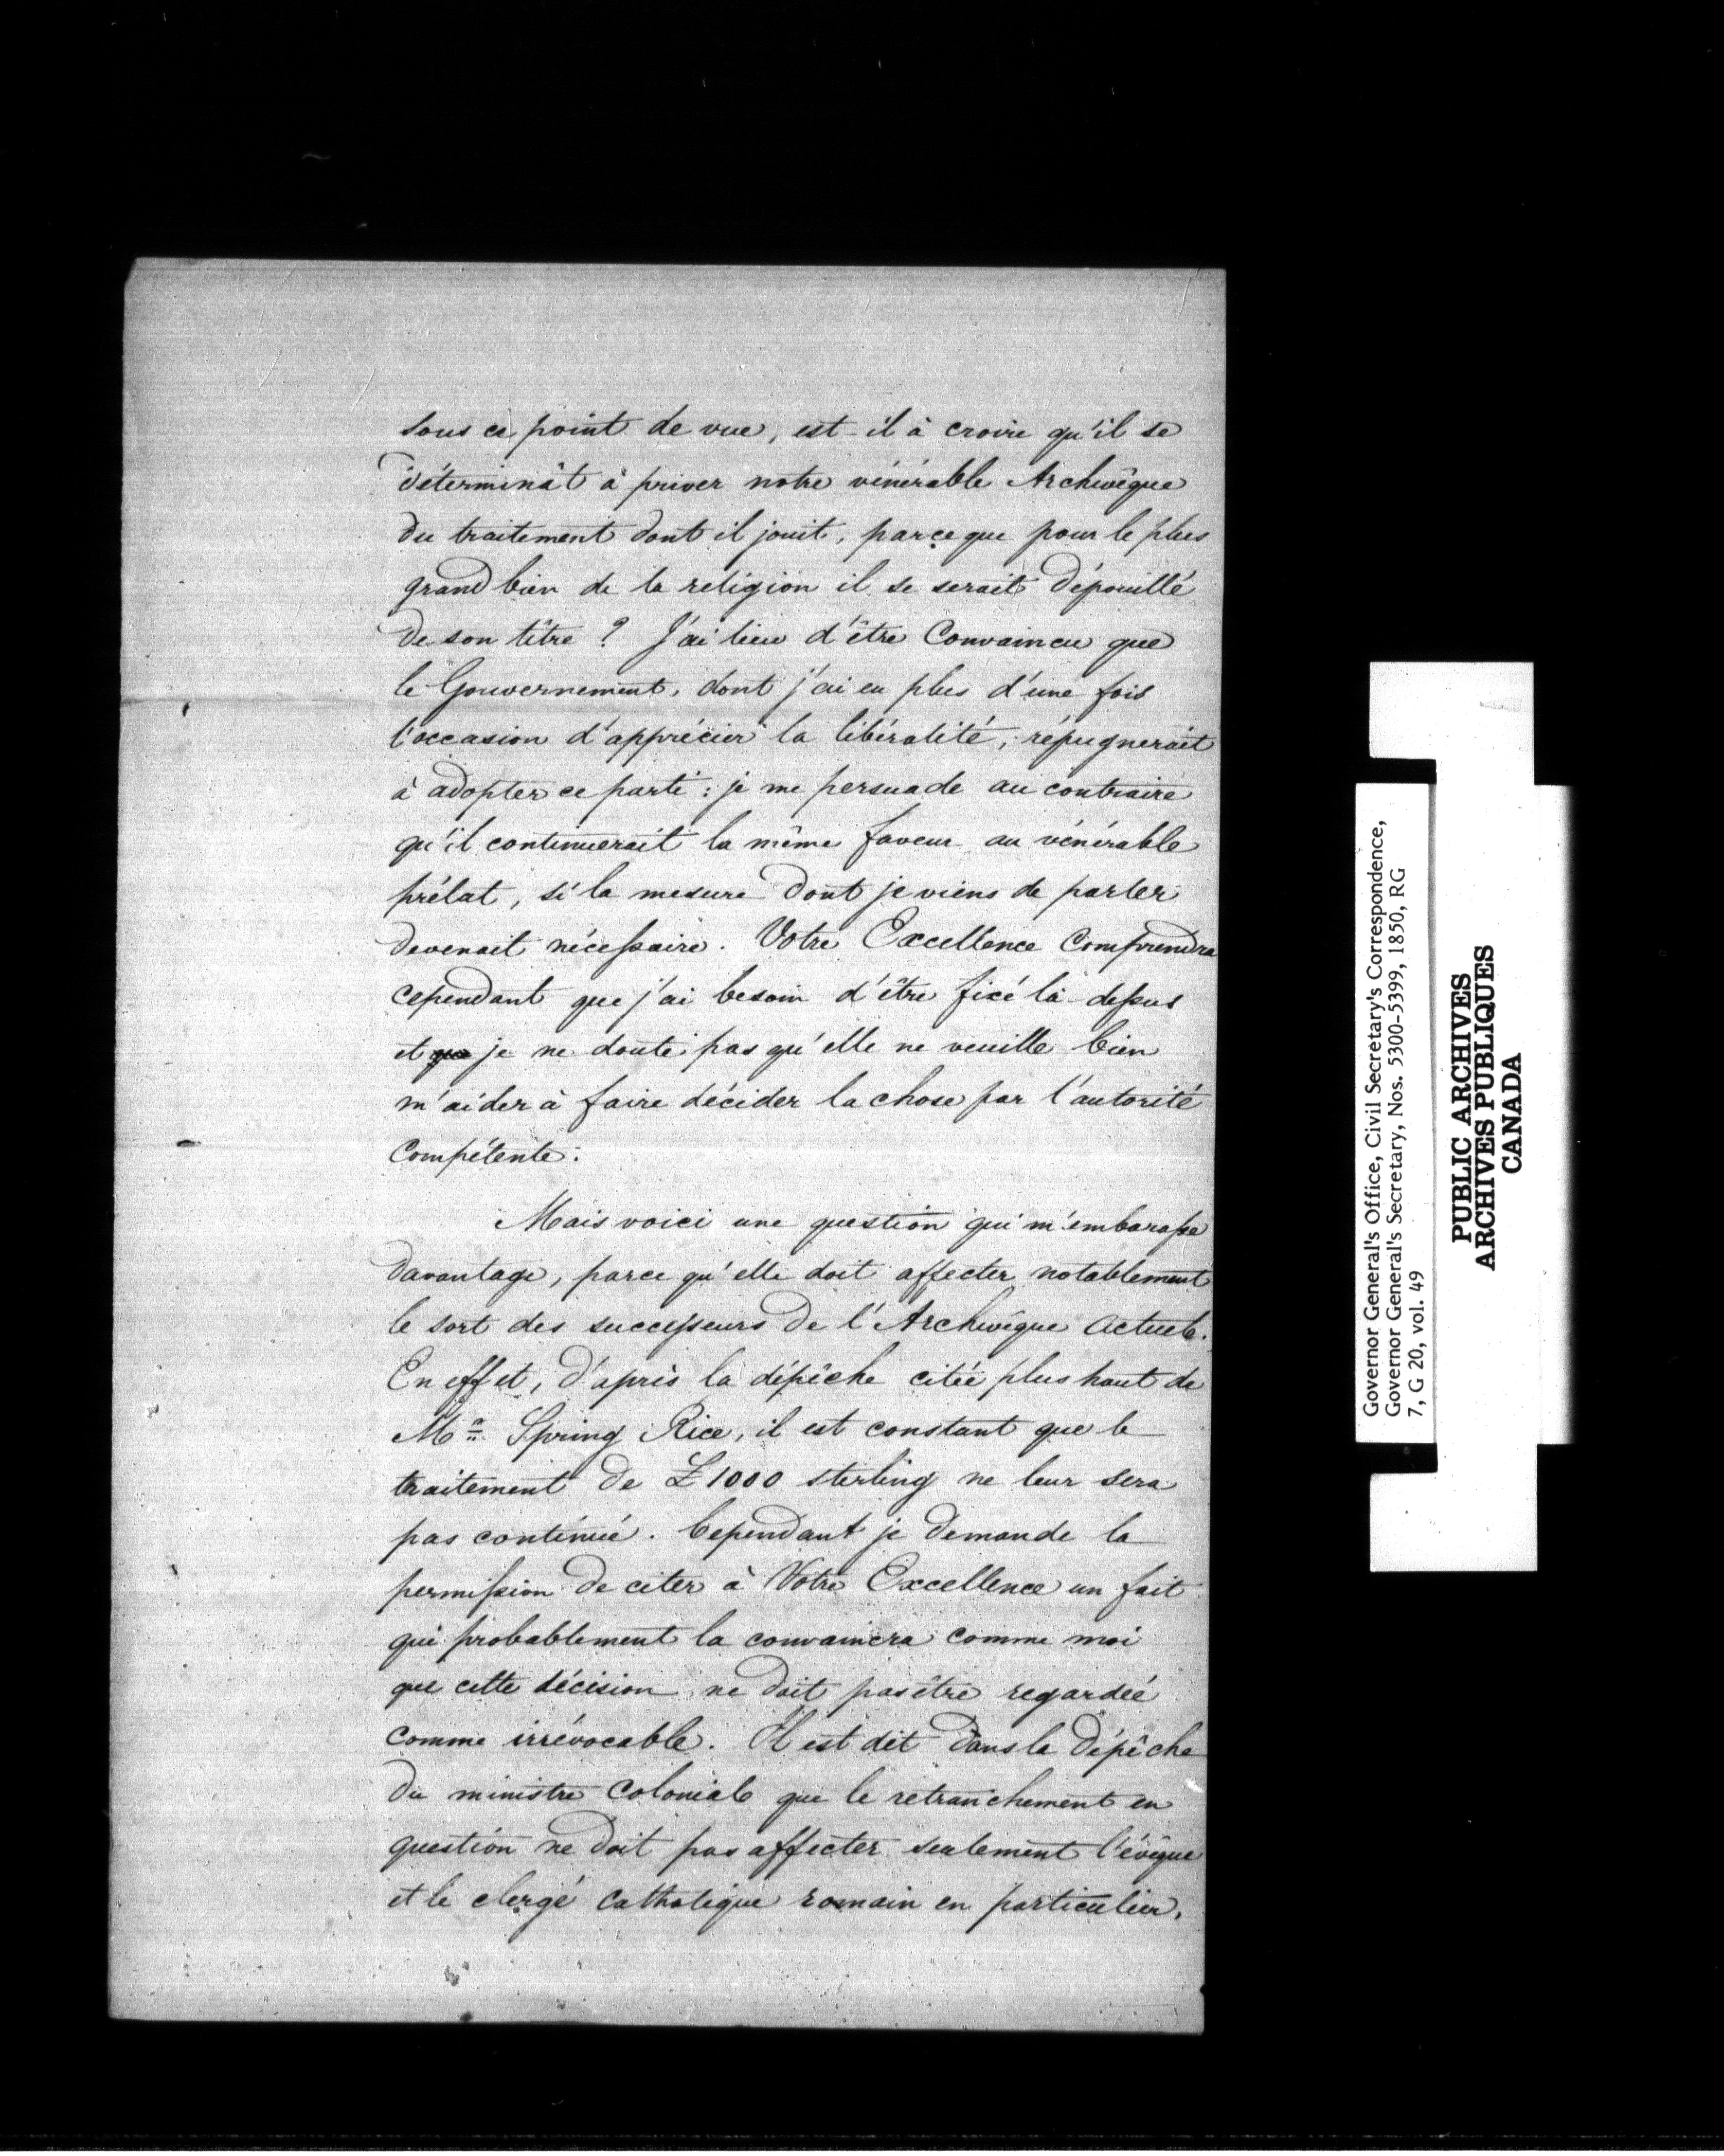 sous ce point de vue, est-il à croire qu'il se
déterminât à priver notre vénérable Archevêque
du traitement dont il jouit, parce que pour le plus
grand bien de la religion il se serait dépouillé
de son tître ? J'ai lieu d'être Convaincu que
le Gouvernement, dont j'ai eu plus d'une fois
l'occasion d'apprécier la libéralité, répugnerait
à adopter ce parti : je me persuade au contraire
qu'il continuerait la même faveur au vénérable
prélat, si la mesure dont je viens de parler
devenait nécessaire. Votre Excellence Comprendra
cependant que j'ai besoin d'être fixé là-dessus
et que je ne doute pas qu'elle ne veuille bien
m'aider à faire décider la chose par l'autorité
Compétente.
Mais voici une question qui m'embarasse
davantage, parce qu'elle doit affecter notablement
le sort des successeurs de l'Archevêque actuel.
En effet, d'après la dépêche citée plus haut de
Mr. Spring Rice, il est constant que le
traitement de £1000 sterling ne leur sera
pas continué. Cependant je demande la
permission de citer à Votre Excellence un fait
qui probablement la convaincra comme moi
que cette décision ne doit pas être regardée
comme irrévocable. Il est dit dans la dépêche
du ministre Colonial que le retranchement en
question ne doit pas affecter seulement l'évêque
et le clergé Catholique romain en particulier,
Governor General's Office, Civil Secretary's Correspondence,
Governor General's Secretary, Nos. 5300-5399, 1850, RG
7, G 20, vol. 49
PUBLIC ARCHIVES
ARCHIVES PUBLIQUES
CANADA